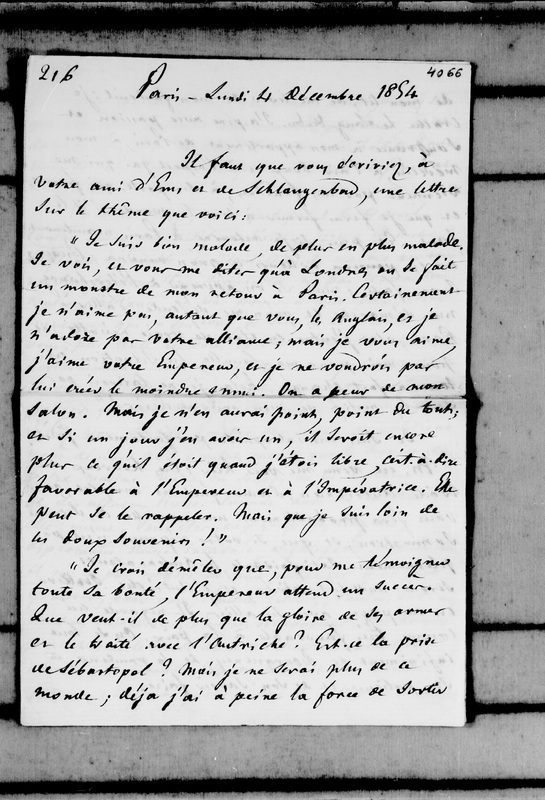 216
4066
Paris - Lundi 4 Décembre 1854
Il faut que vous écriviez, à
votre ami d'Ems et de Schlangenbad, une lettre
sur le thême que voici:
"Je suis bien malade, de plus en plus malade.
Je vois, et vous me dites qu'à Londres on se fait
un monstre de mon retour à Paris. Certainement
je n'aime pas, autant que vous, les Anglais, et je
n'adore pas votre alliance; mais je vous aime,
j'aime votre Empereur, et je ne voudrois pas
lui créer le moindre ennui. On a peur de mon
salon. Mais je n'en aurai point, point du tout;
et si un jour j'en avois un, il seroit encore
plus ce qu'il étoit quand j'étois libre, c'est-à-dire
favorable à l'Empereur et à l'Impératrice. Elle
peut se le rappeler. Mais que je suis loin de
ces doux souvenirs!"
"Je crois démêler que, pour me témoigner
toute sa bonté, l'Empereur attend un succès.
Que veut-il de plus que la gloire de ses armes
et le traité avec l'Autriche? Est-ce la prise
de Sébastopol? Mais je ne serai plus de ce
monde; déja j'ai à peine la force de sortir